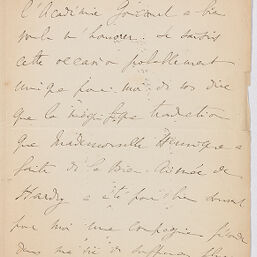 l'Académie Goncourt a bien
voulu m'honorer. Je saisis
cette occasion probablement
unique pour moi de vous dire
que la magnifique traduction
que Mademoiselle
faite de la Bien-Aimée de
Hardy a été
pour moi une compagnie
dans ma vie de